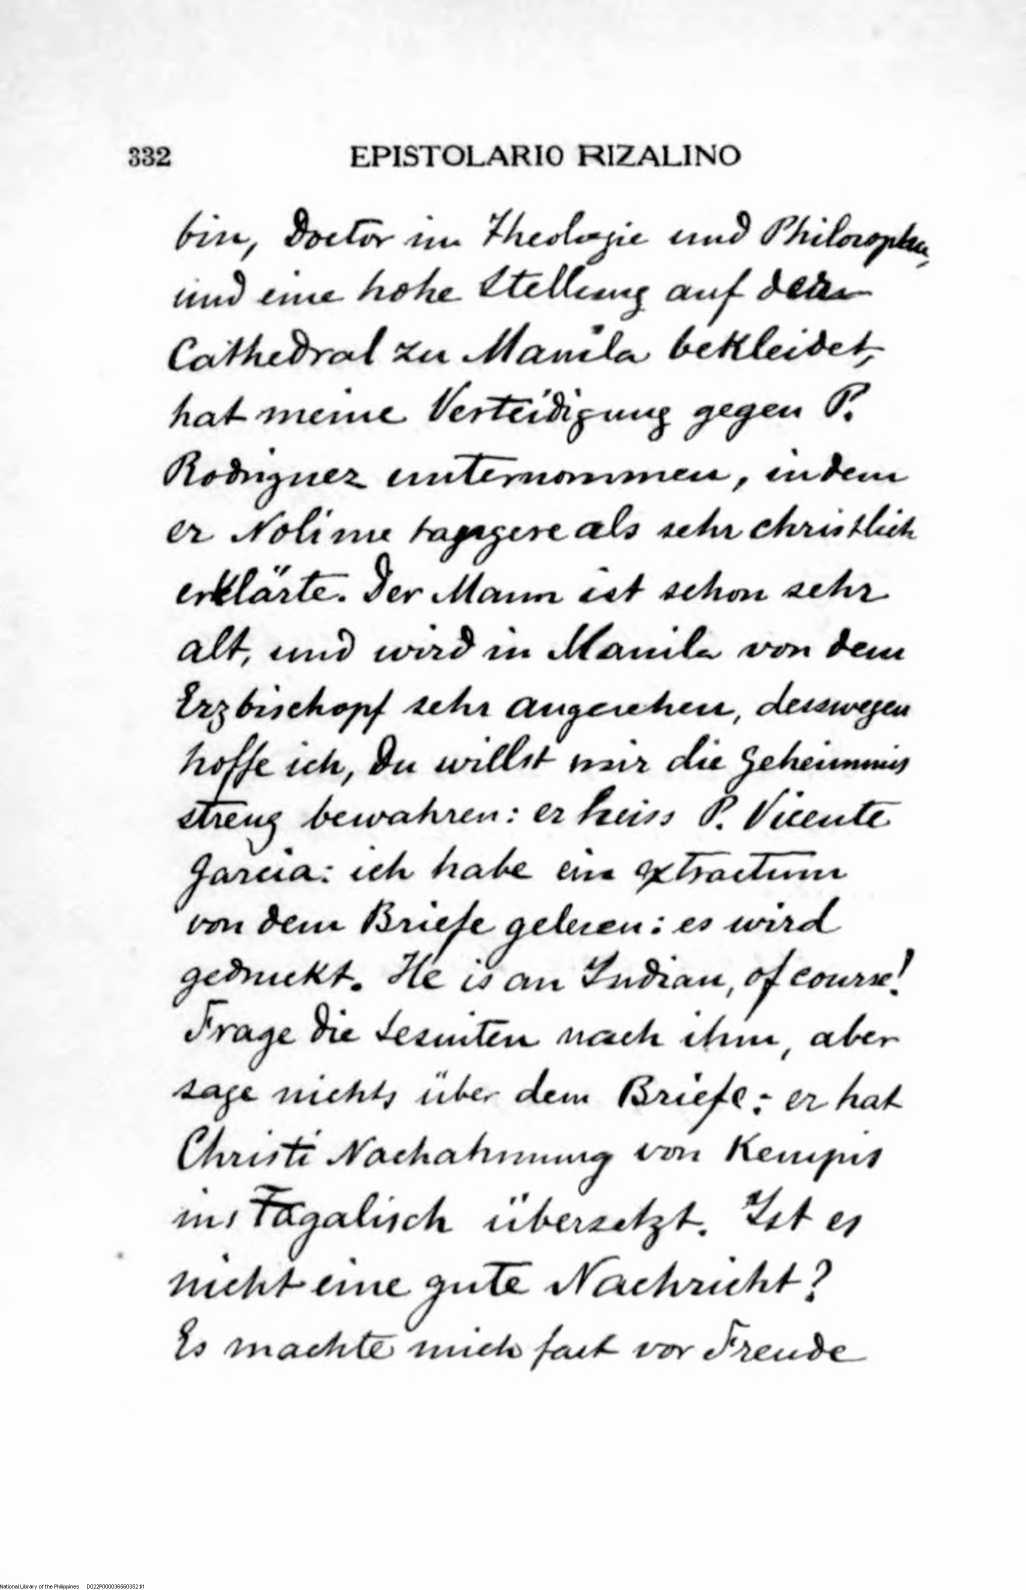 332 EPISTOLARIO RIZALINO
bin, Doctor im Theologie und Philosophie,
und eine hohe Stellung auf der
Cathedral zu Manila bekleidet,
hat meine Verteidigung gegen P.
Rodriguez unternommen, indem
er Noli me tangere als sehr christlich
erklärte. Der Mann ist schon sehr
alt, und wird in Manila von dem
Erzbischopf sehr angesehen, desswegen
hoffe ich, Du willst mir die Geheimnis
streng bewahren: er heiss P. Vicente
Garcia: ich habe ein extractum
von dem Briefe gelesen: es wird
gedruckt. He is an Indian, of course!
Frage die Jesuiten nach ihm, aber
sage nichts über dem Briefe: er hat
Christi Nachahmung von Kempis
ins Tagalisch übersetzt. Ist es
nicht eine gute Nachricht?
Es machte mich fast vor Freude
National Library of the Philippines